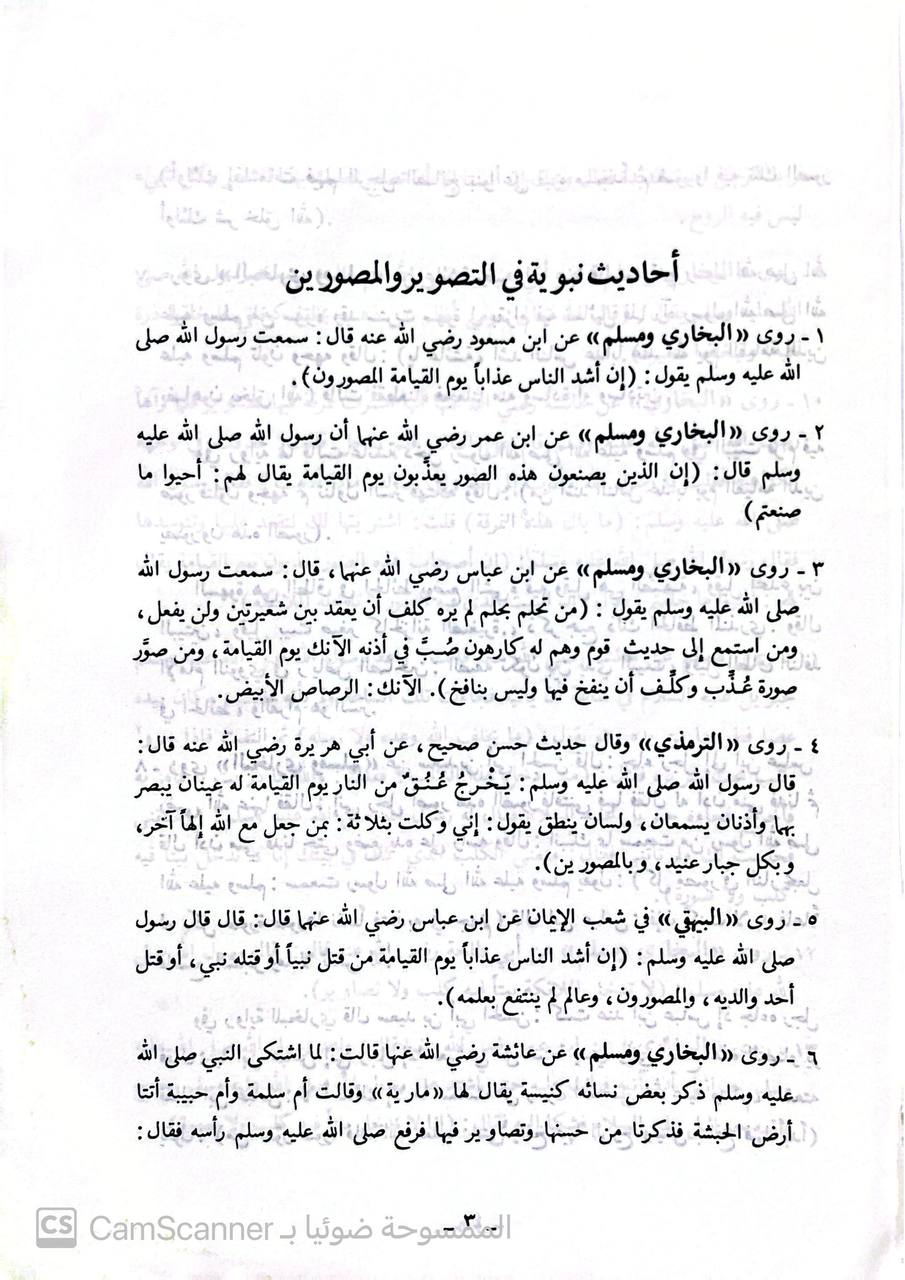 أحاديث نبوية في التصوير والمصورين
١ - روى «البخاري ومسلم» عن ابن مسعود رضي الله عنه قال: سمعت رسول الله صلى
الله عليه وسلم يقول: (إن أشد الناس عذاباً يوم القيامة المصورون).
٢ - روى «البخاري ومسلم» عن ابن عمر رضي الله عنهما أن رسول الله صلى الله عليه
وسلم قال: (إن الذين يصنعون هذه الصور يعذَّبون يوم القيامة يقال لهم: أحيوا ما
صنعتم)
٣ - روى «البخاري ومسلم» عن ابن عباس رضي الله عنهما، قال: سمعت رسول الله
صلى الله عليه وسلم يقول: (من تحلم بحلم لم يره كلف أن يعقد بين شعيرتين ولن يفعل،
ومن استمع إلى حديث قوم وهم له كارهون صُبَّ في أذنه الآنك يوم القيامة، ومن صوَّر
صورة عُذَّب وكلَّف أن ينفخ فيها وليس بنافخ). الآنك: الرصاص الأبيض.
٤ - روى «الترمذي» وقال حديث حسن صحيح، عن أبي هريرة رضي الله عنه قال:
قال رسول الله صلى الله عليه وسلم: يَخْرجُ عُنُقٌ من النار يوم القيامة له عينان يبصر
بهما وأذنان يسمعان، ولسان ينطق يقول: إني وكلت بثلاثة: بمن جعل مع الله إلهاً آخر،
وبكل جبار عنيد، وبالمصورين).
٥ - روى «البيهقي» في شعب الإيمان عن ابن عباس رضي الله عنهما قال: قال قال رسول
صلى الله عليه وسلم: (إن أشد الناس عذاباً يوم القيامة من قتل نبياً أو قتله نبي، أو قتل
أحد والديه، والمصورون، وعالم لم ينتفع بعلمه).
٦ - روى «البخاري ومسلم» عن عائشة رضي الله عنها قالت: لما اشتكى النبي صلى الله
عليه وسلم ذكر بعض نسائه كنيسة يقال لها «مارية» وقالت أم سلمة وأم حبيبة أتتا
أرض الحبشة فذكرتا من حسنها وتصاوير فيها فرفع صلى الله عليه وسلم رأسه فقال:
- ٣ -
CS CamScanner الممسوحة ضوئيا بـ